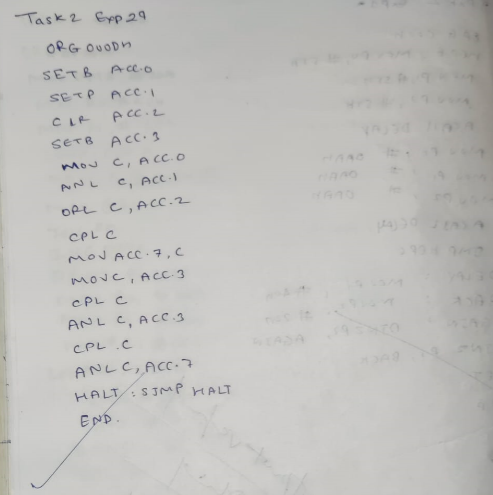 Task 2 Exp 29
ORG 0000H
SETB ACC.0
SETB ACC.1
CLR ACC.2
SETB ACC.3
MOV C, ACC.0
ANL C, ACC.1
ORL C, ACC.2
CPL C
MOV ACC.7, C
MOVC, ACC.3
CPL C
ANL C, ACC.3
CPL .C
ANL C, ACC.7
HALT : SJMP HALT
END.